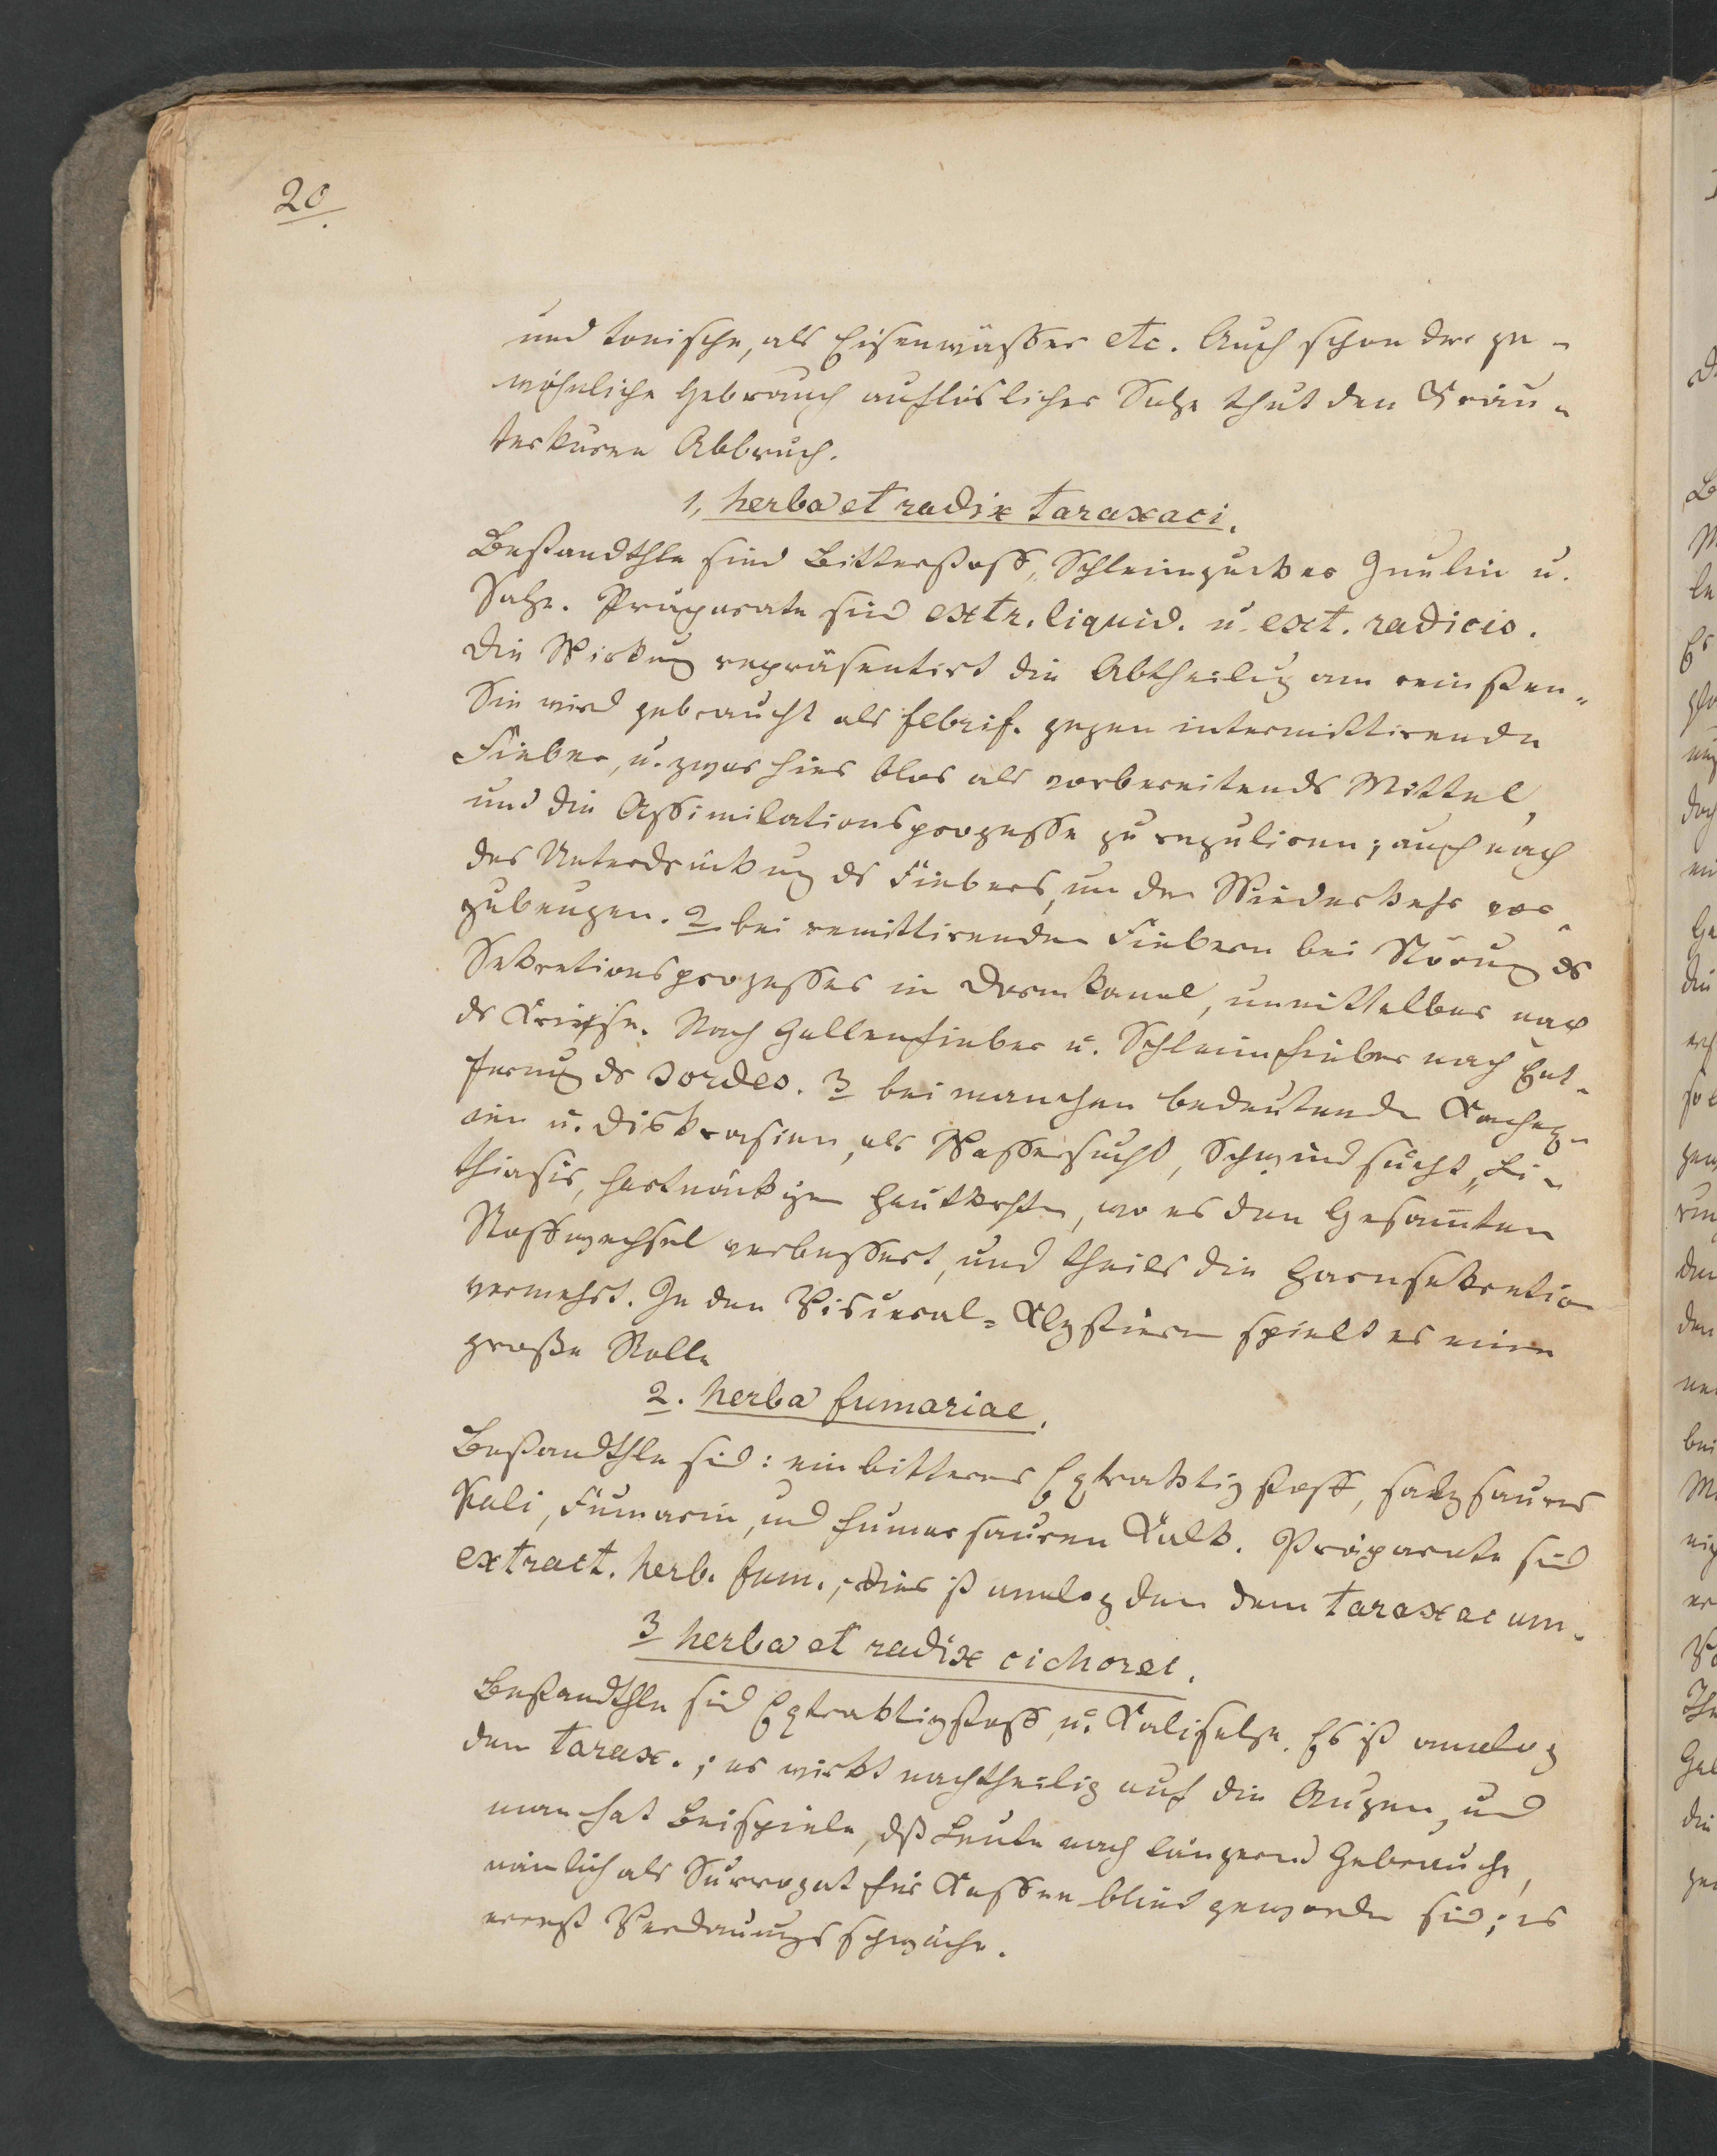 20.
und tonische, als Eisenwässer etc. Auch schon der ge-
wöhnliche Gebrauch auflöslicher Salze thut den Kräu-
terkuren Abbruch.
1, herba et radix taraxaci.
Bestandthle sind Bitterstoff, Schleimzucker Inulin u.
Salze. Präparate sind extr. liquid. u. ext. radicis.
Die Wirkung repräsentirt die Abtheilug am reinsten.
Sie wird gebraucht als febrif. gegen intermittirende
Fieber, u. zwar hier blos als vorbereitends Mittel,
und die Assimilationsprozesse zu reguliren; auch nach
der Unterdrückung ds Fiebers, um der Wiederkehr vor-
zubeugen. 2 bei remittirenden Fiebern bei Störung ds
Sekretionsprozesses im Darmkanal, unmittelbar nach
dr Kriese. Nach Gallenfieber u. Schleimfieber nach Ent-
fernug dr sordes. 3 bei manchen bedeutende Kachex-
ien u. Diskrasien, als Wassersucht, Schwindsucht, Li-
thiasis, hartnäckigen Hautkrhten, wo es den Gesam̄ten
Stoffwechsel verbessert, und theils die Harnsekretion
vermehrt. In den Visceral-Klystiren spielt es eine
große Rolle
2. herba fumariae.
Bestandthle sid: ein bitterer Extraktivstoff, salzsaures
Kali, Fumarin, und fumarsauren Kalk. Präparate sid
extract. herb. fum.; dies ist analog den dem taraxacum.
3 herba et radix cichorei.
Bestandthle sid Extraktivstoff, u. Kalisalze. Es ist analog
dem tarax.; es wirkt nachtheilig auf die Augen, und
man hat Beispiele, dß Leute nach längerem Gebrauche,
nämlich als Surrogat für Kaffee blind geworden sid; es
erregt Verdauungsschwäche.